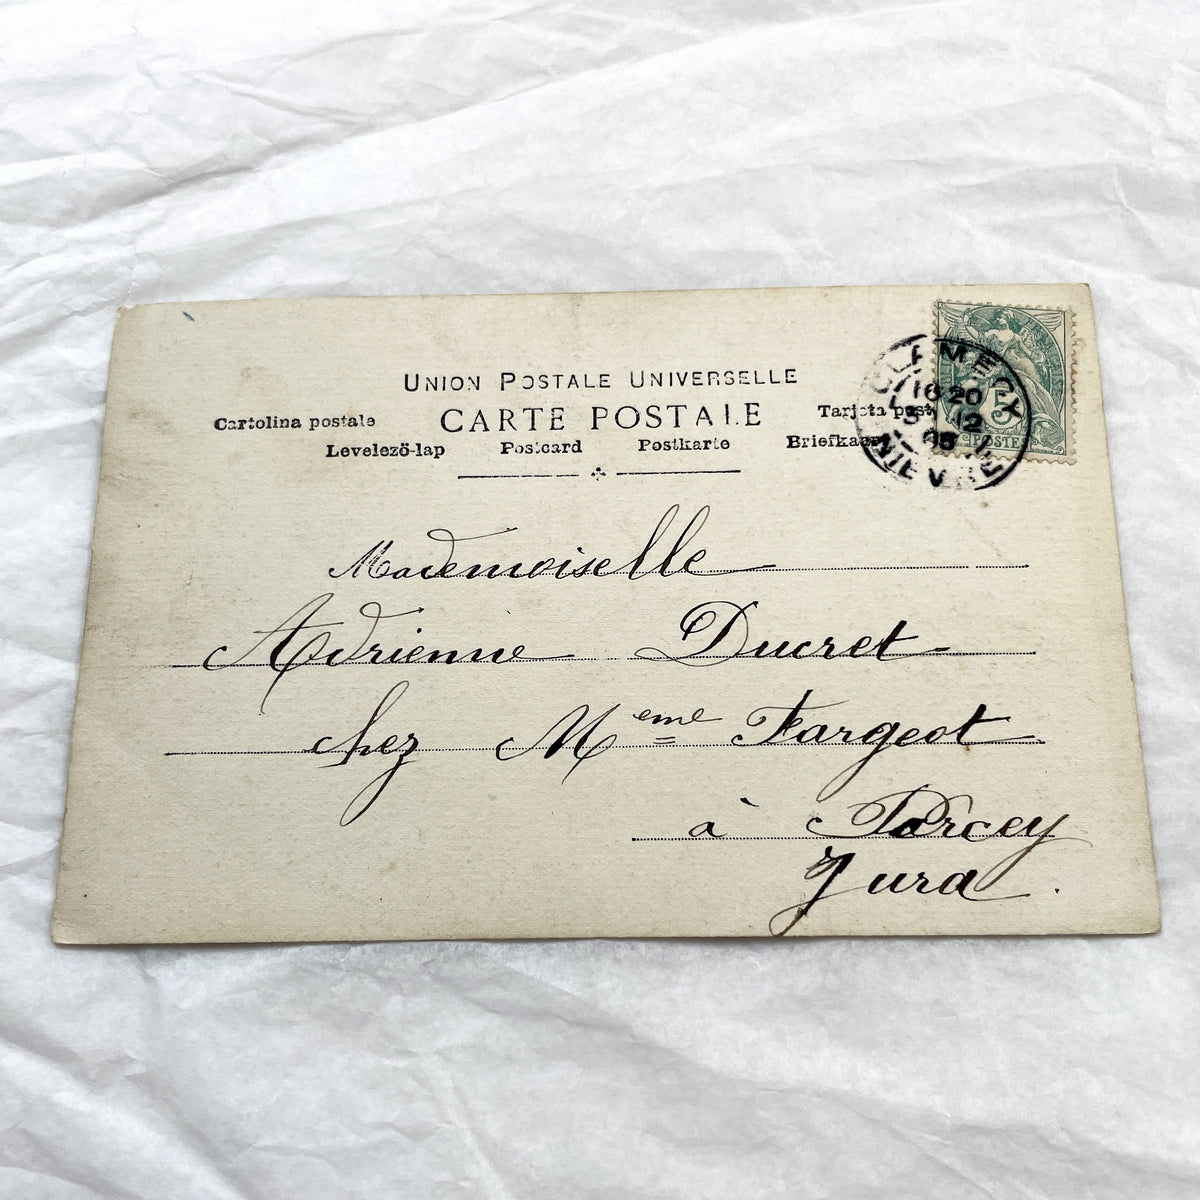 UNION POSTALE UNIVERSELLE
Cartolina postale CARTE POSTALE Tarjeta post
Levelező-lap Postcard Postkarte Briefkaar
CLAMECY
16 20
5 12
05
NIEVRE
5
POSTES
Mademoiselle
Adrienne Ducret
chez Meme Fargeot
à Parcey
Jura.